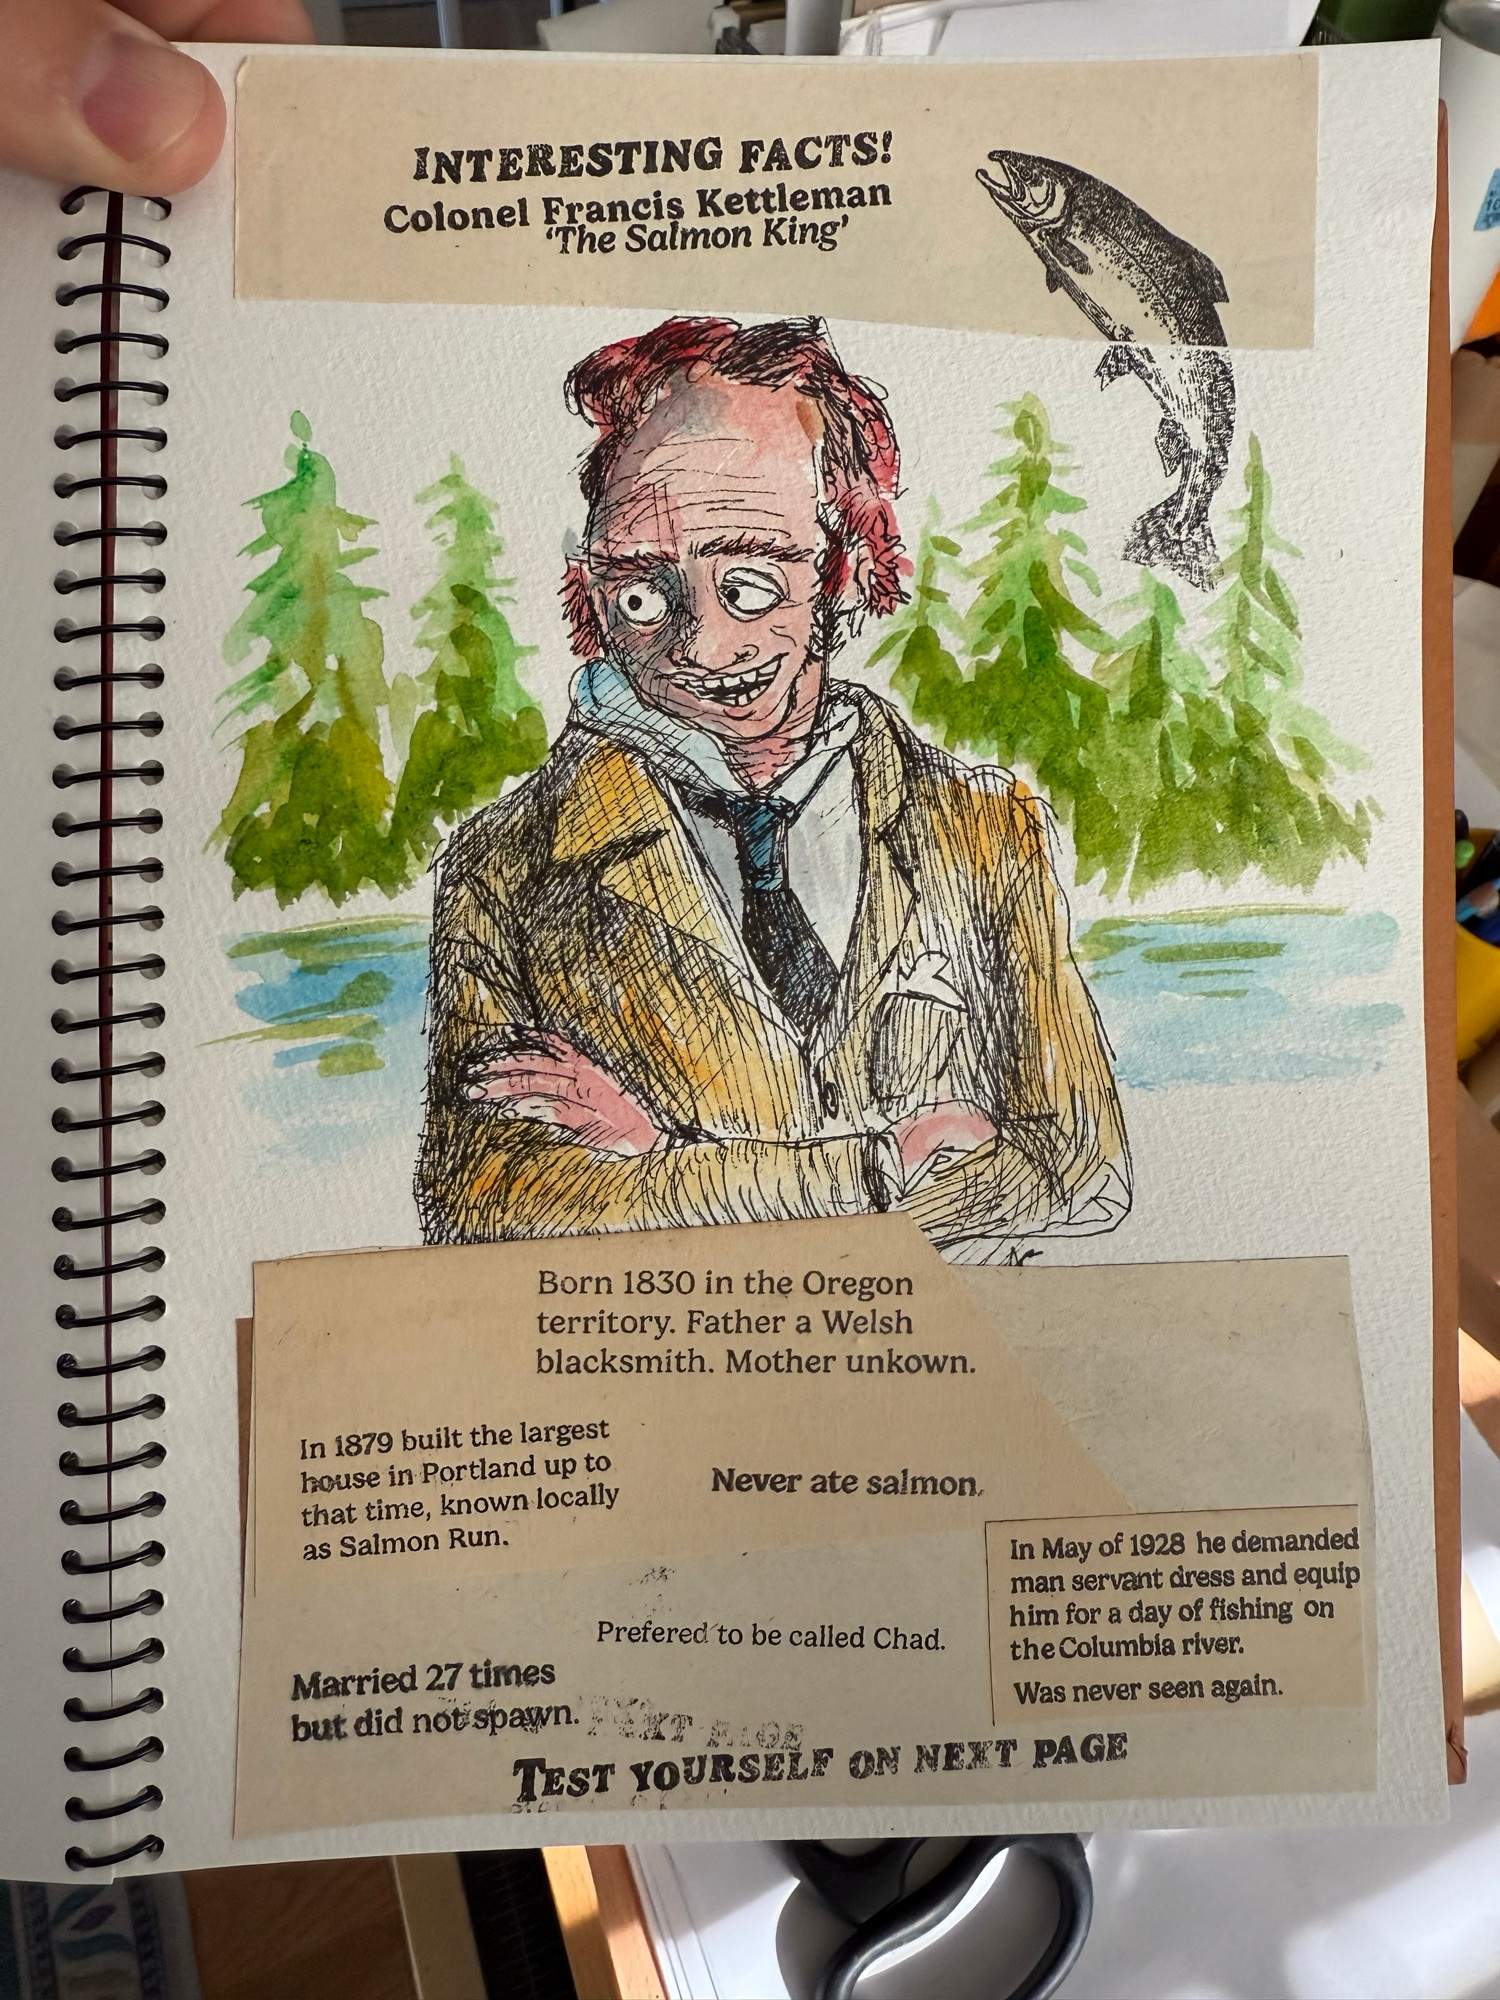 INTERESTING FACTS!
Colonel Francis Kettleman
'The Salmon King'
Born 1830 in the Oregon
territory. Father a Welsh
blacksmith. Mother unkown.
In 1879 built the largest
house in Portland up to
that time, known locally
as Salmon Run.
Never ate salmon.
Prefered to be called Chad.
Married 27 times
but did not spawn.
In May of 1928 he demanded
man servant dress and equip
him for a day of fishing on
the Columbia river.
Was never seen again.
NEXT PAGE
TEST YOURSELF ON NEXT PAGE